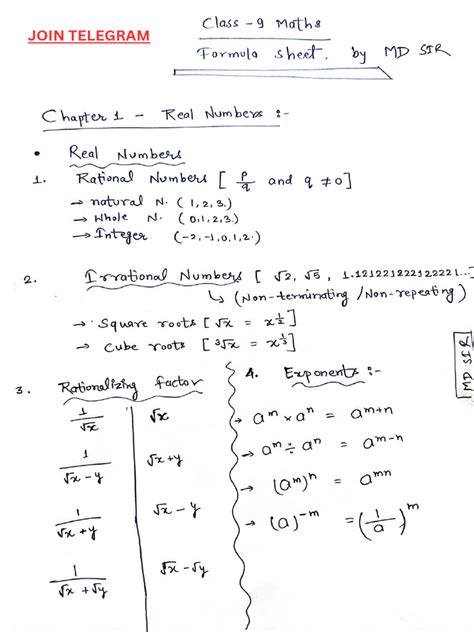 JOIN TELEGRAM
Class - 9 Maths
Formula Sheet. by MD SIR
Chapter 1 - Real Numbers :-
• Real Numbers
1. Rational Numbers [ p/q and q ≠ 0 ]
→ natural N. ( 1, 2, 3.)
→ Whole N. ( 0, 1, 2, 3.)
→ Integer (-2, -1, 0, 1, 2.)
2. Irrational Numbers [ √2, √5, 1.121221222122221...]
↳ (Non-terminating / Non-repeating)
→ Square roots [ √x = x^1/2 ]
→ Cube roots [ ³√x = x^1/3 ]
MD SIR
3. Rationalizing factor
1/√x √x
1/√x - y √x + y
1/√x + y √x - y
1/√x + √y √x - √y
4. Exponents :-
→ a^m × a^n = a^m+n
→ a^m ÷ a^n = a^m-n
→ (a^m)^n = a^mn
→ (a)^-m = (1/a)^m